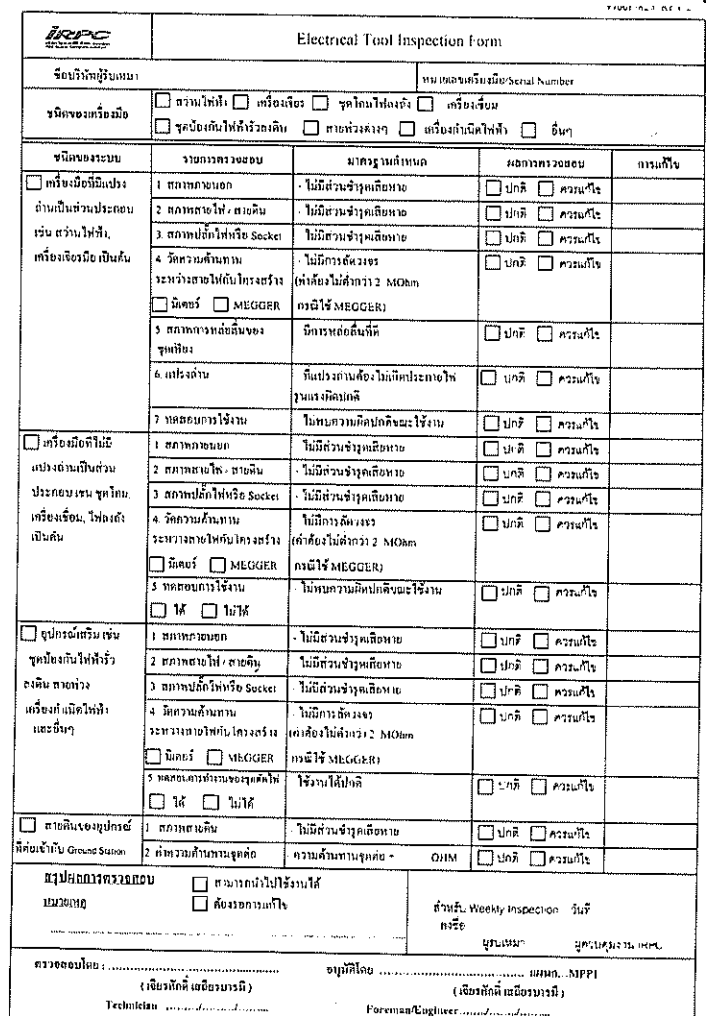 IRPC
Electrical Tool Inspection Form
ชื่อบริษัทผู้รับเหมา หมายเลขเครื่องมือ/Serial Number
ชนิดของเครื่องมือ
สว่านไฟฟ้า เครื่องเจียร ชุดโคมไฟลงถัง เครื่องเชื่อม
ชุดป้องกันไฟฟ้ารั่วลงดิน สายพ่วงต่างๆ เครื่องกำเนิดไฟฟ้า อื่นๆ
ชนิดของระบบ รายการตรวจสอบ มาตรฐานกำหนด ผลการตรวจสอบ การแก้ไข
เครื่องมือที่มีแปรง
ถ่านเป็นส่วนประกอบ
เช่น สว่านไฟฟ้า,
เครื่องเจียรมือ เป็นต้น
1 สภาพภายนอก - ไม่มีส่วนชำรุดเสียหาย ปกติ ควรแก้ไข
2 สภาพสายไฟ / สายดิน - ไม่มีส่วนชำรุดเสียหาย ปกติ ควรแก้ไข
3. สภาพปลั๊กไฟหรือ Socket ไม่มีส่วนชำรุดเสียหาย ปกติ ควรแก้ไข
4 วัดความต้านทาน - ไม่มีการลัดวงจร ปกติ ควรแก้ไข
ระหว่างสายไฟกับโครงสร้าง (ค่าต้องไม่ต่ำกว่า 2 MOhm
มิเตอร์ MEGGER กรณีใช้ MEGGER)
5 สภาพการหล่อลื่นของ มีการหล่อลื่นที่ดี ปกติ ควรแก้ไข
ชุดเฟือง
6. แปรงถ่าน ที่แปรงถ่านต้องไม่เกิดประกายไฟ ปกติ ควรแก้ไข
รุนแรงผิดปกติ
7 ทดสอบการใช้งาน ไม่พบความผิดปกติขณะใช้งาน ปกติ ควรแก้ไข
เครื่องมือที่ไม่มี
แปรงถ่านเป็นส่วน
ประกอบ เช่น ชุดโคม,
เครื่องเชื่อม, ไฟลงถัง
เป็นต้น
1 สภาพภายนอก ไม่มีส่วนชำรุดเสียหาย ปกติ ควรแก้ไข
2 สภาพสายไฟ / สายดิน - ไม่มีส่วนชำรุดเสียหาย ปกติ ควรแก้ไข
3 สภาพปลั๊กไฟหรือ Socket - ไม่มีส่วนชำรุดเสียหาย ปกติ ควรแก้ไข
4. วัดความต้านทาน ไม่มีการลัดวงจร ปกติ ควรแก้ไข
ระหว่างสายไฟกับโครงสร้าง (ค่าต้องไม่ต่ำกว่า 2 MOhm
มิเตอร์ MEGGER กรณีใช้ MEGGER)
5 ทดสอบการใช้งาน - ไม่พบความผิดปกติขณะใช้งาน ปกติ ควรแก้ไข
ได้ ไม่ได้
อุปกรณ์เสริม เช่น
ชุดป้องกันไฟฟ้ารั่ว
ลงดิน สายพ่วง
เครื่องกำเนิดไฟฟ้า
และอื่นๆ
1 สภาพภายนอก - ไม่มีส่วนชำรุดเสียหาย ปกติ ควรแก้ไข
2 สภาพสายไฟ / สายดิน - ไม่มีส่วนชำรุดเสียหาย ปกติ ควรแก้ไข
3 สภาพปลั๊กไฟหรือ Socket - ไม่มีส่วนชำรุดเสียหาย ปกติ ควรแก้ไข
4 วัดความต้านทาน - ไม่มีการลัดวงจร ปกติ ควรแก้ไข
ระหว่างสายไฟกับโครงสร้าง (ค่าต้องไม่ต่ำกว่า 2 MOhm
มิเตอร์ MEGGER กรณีใช้ MEGGER)
5 ทดสอบการทำงานของชุดตัดไฟ ใช้งานได้ปกติ ปกติ ควรแก้ไข
ได้ ไม่ได้
สายดินของอุปกรณ์
ที่ต่อเข้ากับ Ground Station
1 สภาพสายดิน - ไม่มีส่วนชำรุดเสียหาย ปกติ ควรแก้ไข
2 ค่าความต้านทานจุดต่อ - ความต้านทานจุดต่อ = OHM ปกติ ควรแก้ไข
สรุปผลการตรวจสอบ สามารถนำไปใช้งานได้
หมายเหตุ ต้องรอการแก้ไข
สำหรับ Weekly Inspection วันที่
ลงชื่อ
ผู้รับเหมา ผู้ควบคุมงาน IRPC
ตรวจสอบโดย : อนุมัติโดย แผนก...MPPI
(เจียรศักดิ์ เสถียรบารมี) (เจียรศักดิ์ เสถียรบารมี)
Technician ......../......../........ Foreman/Engineer ......../......../........